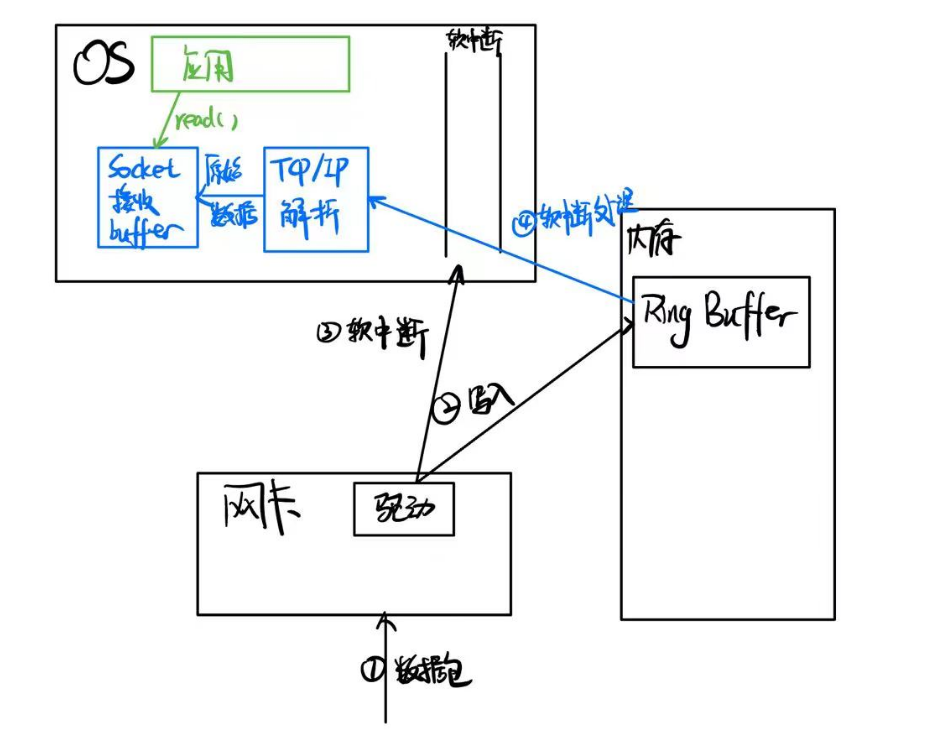 OS
应用
软中断
read()
Socket
接收
buffer
原始
数据
TCP/IP
解析
④软中断处理
内存
Ring Buffer
③软中断
②写入
网卡
驱动
①数据包